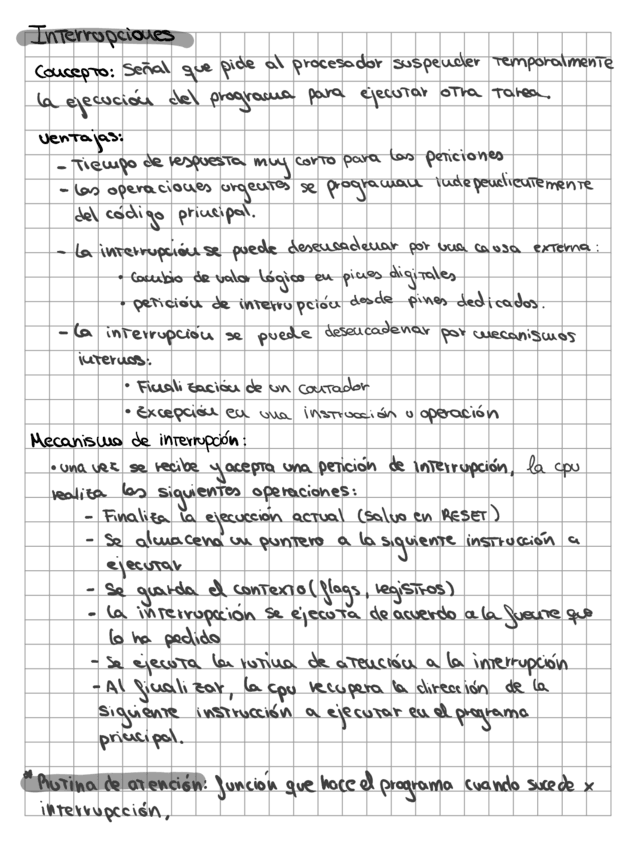 Interrupciones
Concepto: Señal que pide al procesador suspender temporalmente
la ejecución del programa para ejecutar otra tarea.
Ventajas:
- Tiempo de respuesta muy corto para las peticiones
- Las operaciones urgentes se programan independientemente
del código principal.
- La interrupción se puede desencadenar por una causa externa:
• Cambio de valor lógico en pines digitales
• petición de interrupción desde pines dedicados.
- La interrupción se puede desencadenar por mecanismos
internos:
• Finalización de un contador
• Excepción en una instrucción u operación
Mecanismo de interrupción:
• una vez se recibe y acepta una petición de interrupción, la cpu
realiza las siguientes operaciones:
- Finaliza la ejecucción actual (salvo en RESET)
- Se almacena un puntero a la siguiente instrucción a
ejecutar
- Se guarda el contexto (flags, registros)
- La interrupcción se ejecuta de acuerdo a la fuente que
lo ha pedido
- Se ejecuta la rutina de atención a la interrupción
- Al finalizar, la cpu recupera la dirección de la
siguiente instrucción a ejecutar en el programa
principal.
*Rutina de atención: función que hace el programa cuando sucede x
interrupcción.